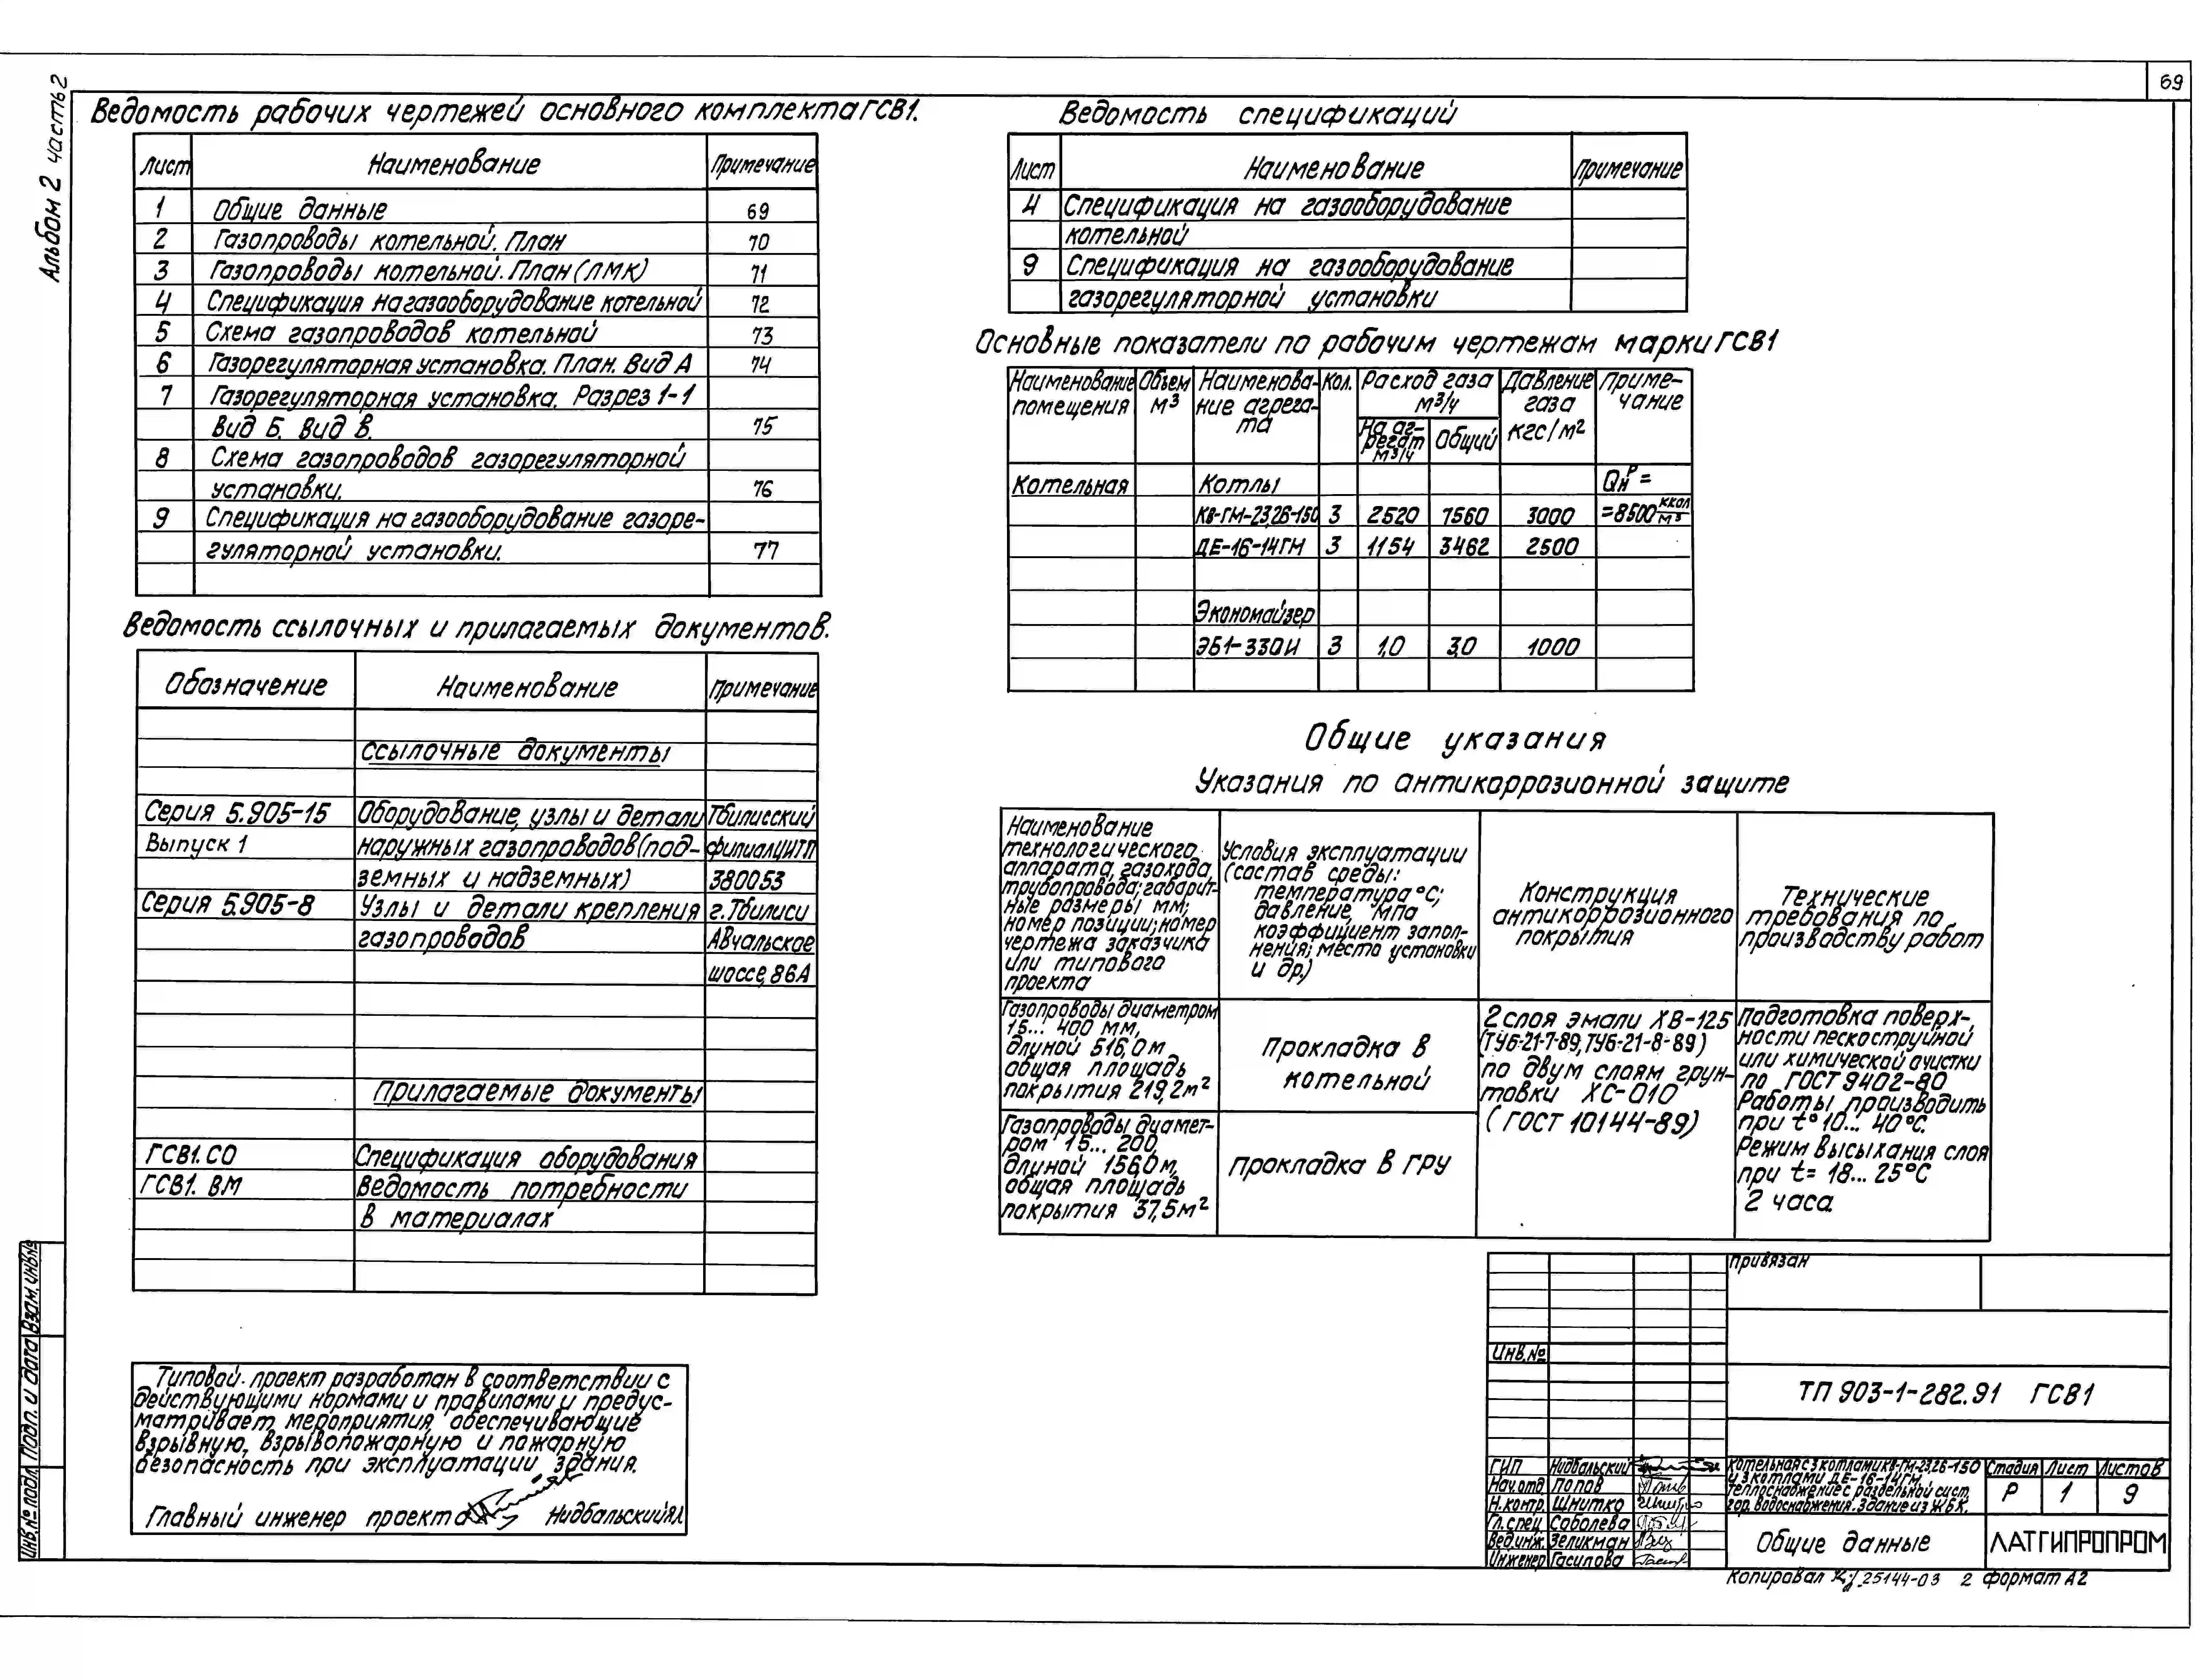 69
Альбом 2 часть 2
Ведомость рабочих чертежей основного комплекта ГСВ1.
Лист Наименование Примечание
1 Общие данные 69
2 Газопроводы котельной. План 70
3 Газопроводы котельной. План (ЛМК) 71
4 Спецификация на газооборудование котельной 72
5 Схема газопроводов котельной 73
6 Газорегуляторная установка. План. Вид А 74
7 Газорегуляторная установка. Разрез 1-1
Вид Б. Вид В. 75
8 Схема газопроводов газорегуляторной
установки. 76
9 Спецификация на газооборудование газоре-
гуляторной установки. 77
Ведомость ссылочных и прилагаемых документов.
Обозначение Наименование Примечание
Ссылочные документы
Серия 5.905-15 Оборудование, узлы и детали Тбилисский
Выпуск 1 наружных газопроводов (под- филиал ЦИТП
земных и надземных) 380053
Серия 5.905-8 Узлы и детали крепления г. Тбилиси
газопроводов Авчальское
шоссе, 86А
Прилагаемые документы
ГСВ1. СО Спецификация оборудования
ГСВ1. ВМ Ведомость потребности
в материалах
Типовой проект разработан в соответствии с
действующими нормами и правилами и предус-
матривает мероприятия, обеспечивающие
взрывную, взрывопожарную и пожарную
безопасность при эксплуатации здания.
Главный инженер проекта Нидбальский Я.
Ведомость спецификаций
Лист Наименование Примечание
4 Спецификация на газооборудование
котельной
9 Спецификация на газооборудование
газорегуляторной установки
Основные показатели по рабочим чертежам марки ГСВ1
Наименование помещения Объем м³ Наименова-ние агрега-та Кол. Расход газа м³/ч Давление газа кгс/м² Приме-чание
На аг-регат м³/ч Общий
Котельная Котлы Qнᴾ =
КВ-ГМ-23,26-150 3 2520 7560 3000 =8500 ккал/м³
ДЕ-16-14ГМ 3 1154 3462 2500
Экономайзер
ЭБ1-330И 3 1,0 3,0 1000
Общие указания
Указания по антикоррозионной защите
Наименование
технологического
аппарата, газохода,
трубопровода; габарит-
ные размеры мм;
номер позиции; номер
чертежа заказчика
или типового
проекта
Условия эксплуатации
(состав среды:
температура °С;
давление, МПа
коэффициент запол-
нения; место установки
и др.)
Конструкция
антикоррозионного
покрытия
Технические
требования по
производству работ
Газопроводы диаметром
15... 400 мм,
длиной 516,0 м
общая площадь
покрытия 219,2 м²
Прокладка в
котельной
2 слоя эмали ХВ-125
(ТУ6-21-7-89, ТУ6-21-8-89)
по двум слоям грун-
товки ХС-010
(ГОСТ 10144-89)
Подготовка поверх-
ности пескоструйной
или химической очистки
по ГОСТ 9402-80
Работы производить
при t° 10... 40°С.
Режим высыхания слоя
при t= 18... 25°С
2 часа
Газопроводы диамет-
ром 15... 200,
длиной 156,0 м,
общая площадь
покрытия 37,5 м²
Прокладка в ГРУ
Привязан
Инв.№
ТП 903-1-282.91 ГСВ1
ГИП Нидбальский
Нач.отд Попов
Н.контр. Шнитко
Гл.спец Соболева
Вед.инж. Зеликман
Инженер Гасилова
Котельная с 3 котлами КВ-ГМ-23,26-150
и 3 котлами ДЕ-16-14ГМ.
Теплоснабжение с раздельной сист.
гор. водоснабжения. Здание из ЖБК.
Стадия Лист Листов
Р 1 9
Общие данные
ЛАТГИПРОПРОМ
Копировал 25144-03 2 формат А2
Инв.№ подл. Подп. и дата Взам.инв.№